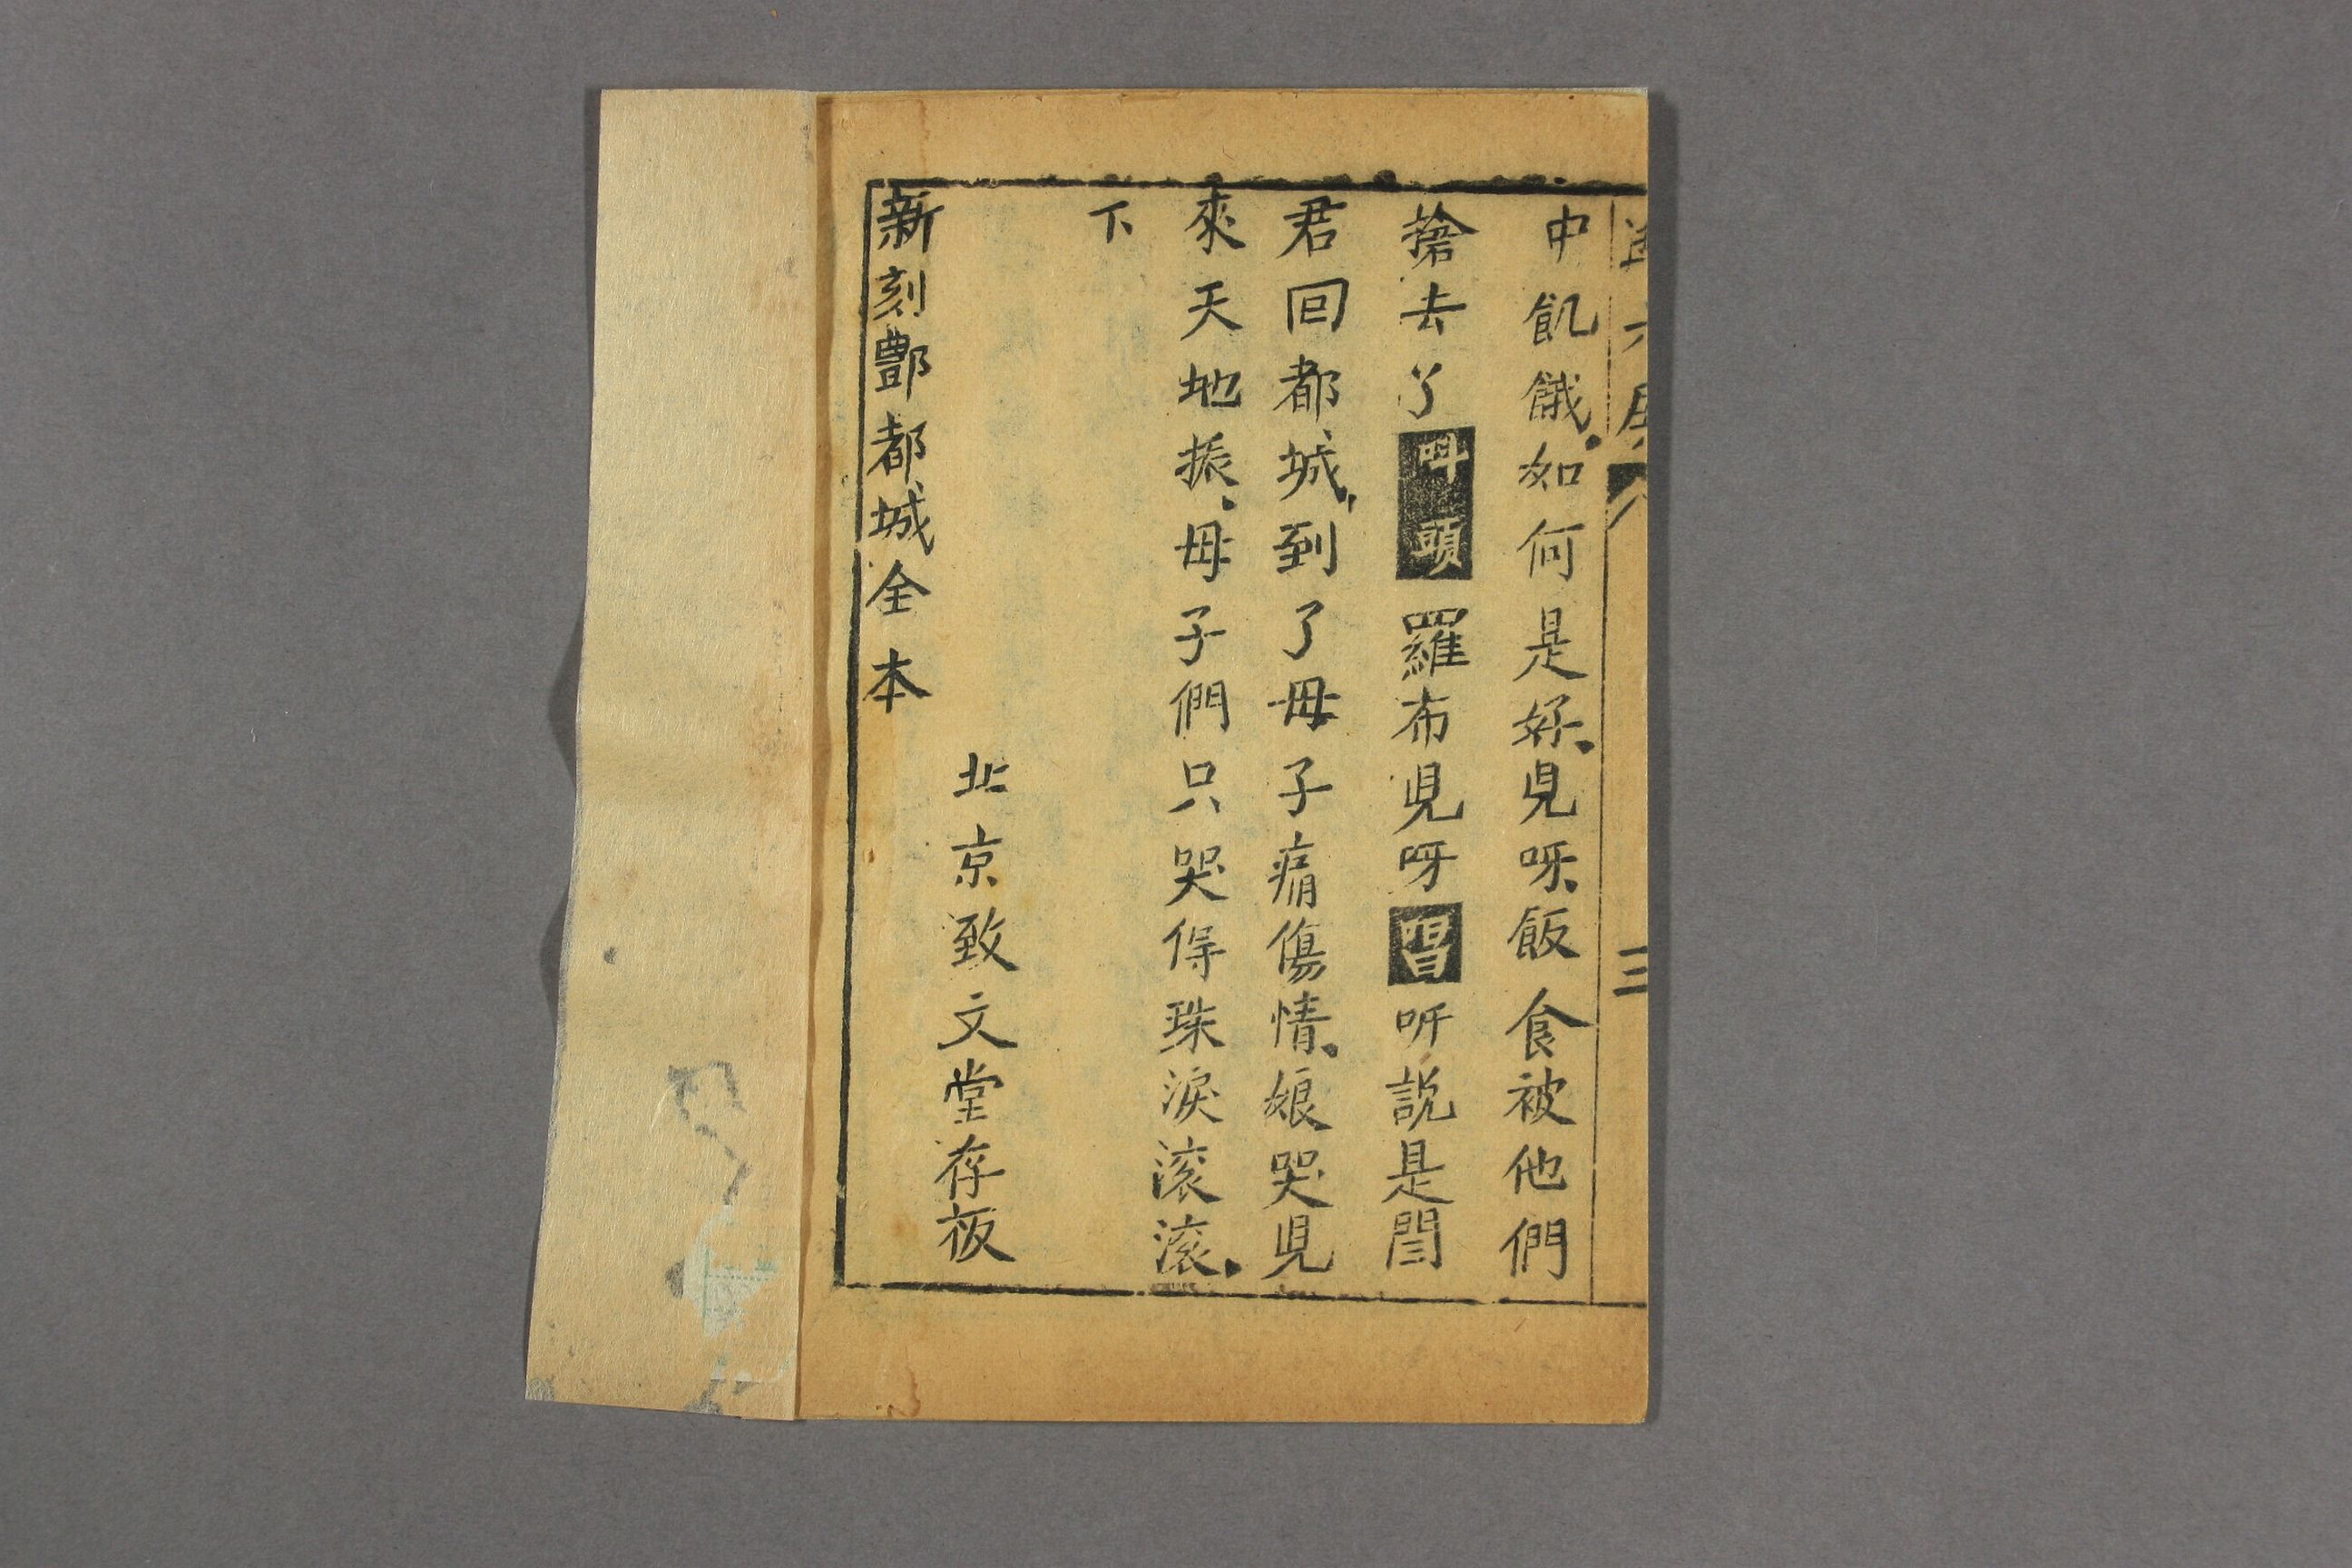 中飢餓如何是好兒呀飯食被他們
搶去了叫頭羅布兒呀唱听説是閆
君回都城到了母子痛傷情娘哭兒
來天地振母子們只哭得珠淚滚滚
下
北京致文堂存板
新刻酆都城全本
三